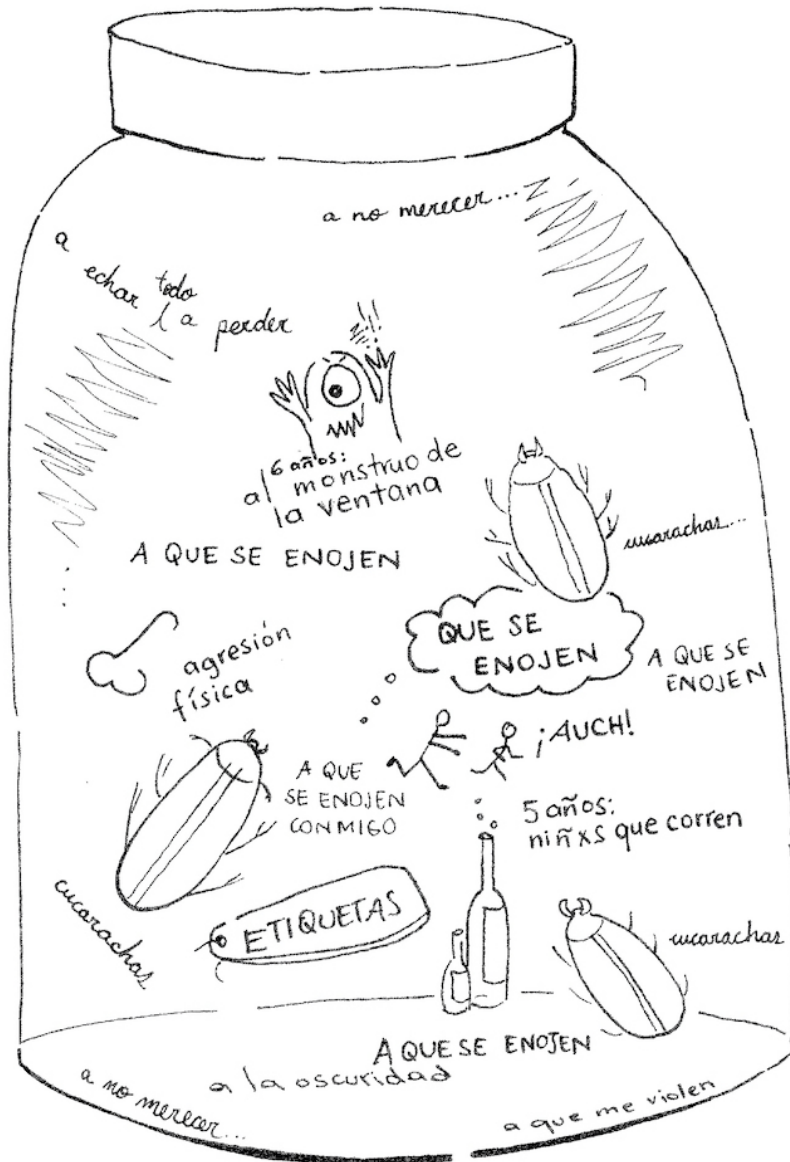 a no merecer...
a
echar todo
a perder
6 años:
al monstruo de
la ventana
A QUE SE ENOJEN
cucarachas...
QUE SE
ENOJEN
A QUE SE
ENOJEN
agresión
física
¡AUCH!
A QUE
SE ENOJEN
CONMIGO
5 años:
niñxs que corren
cucarachas
ETIQUETAS
cucarachas
A QUE SE ENOJEN
a la oscuridad
a no merecer...
a que me violen